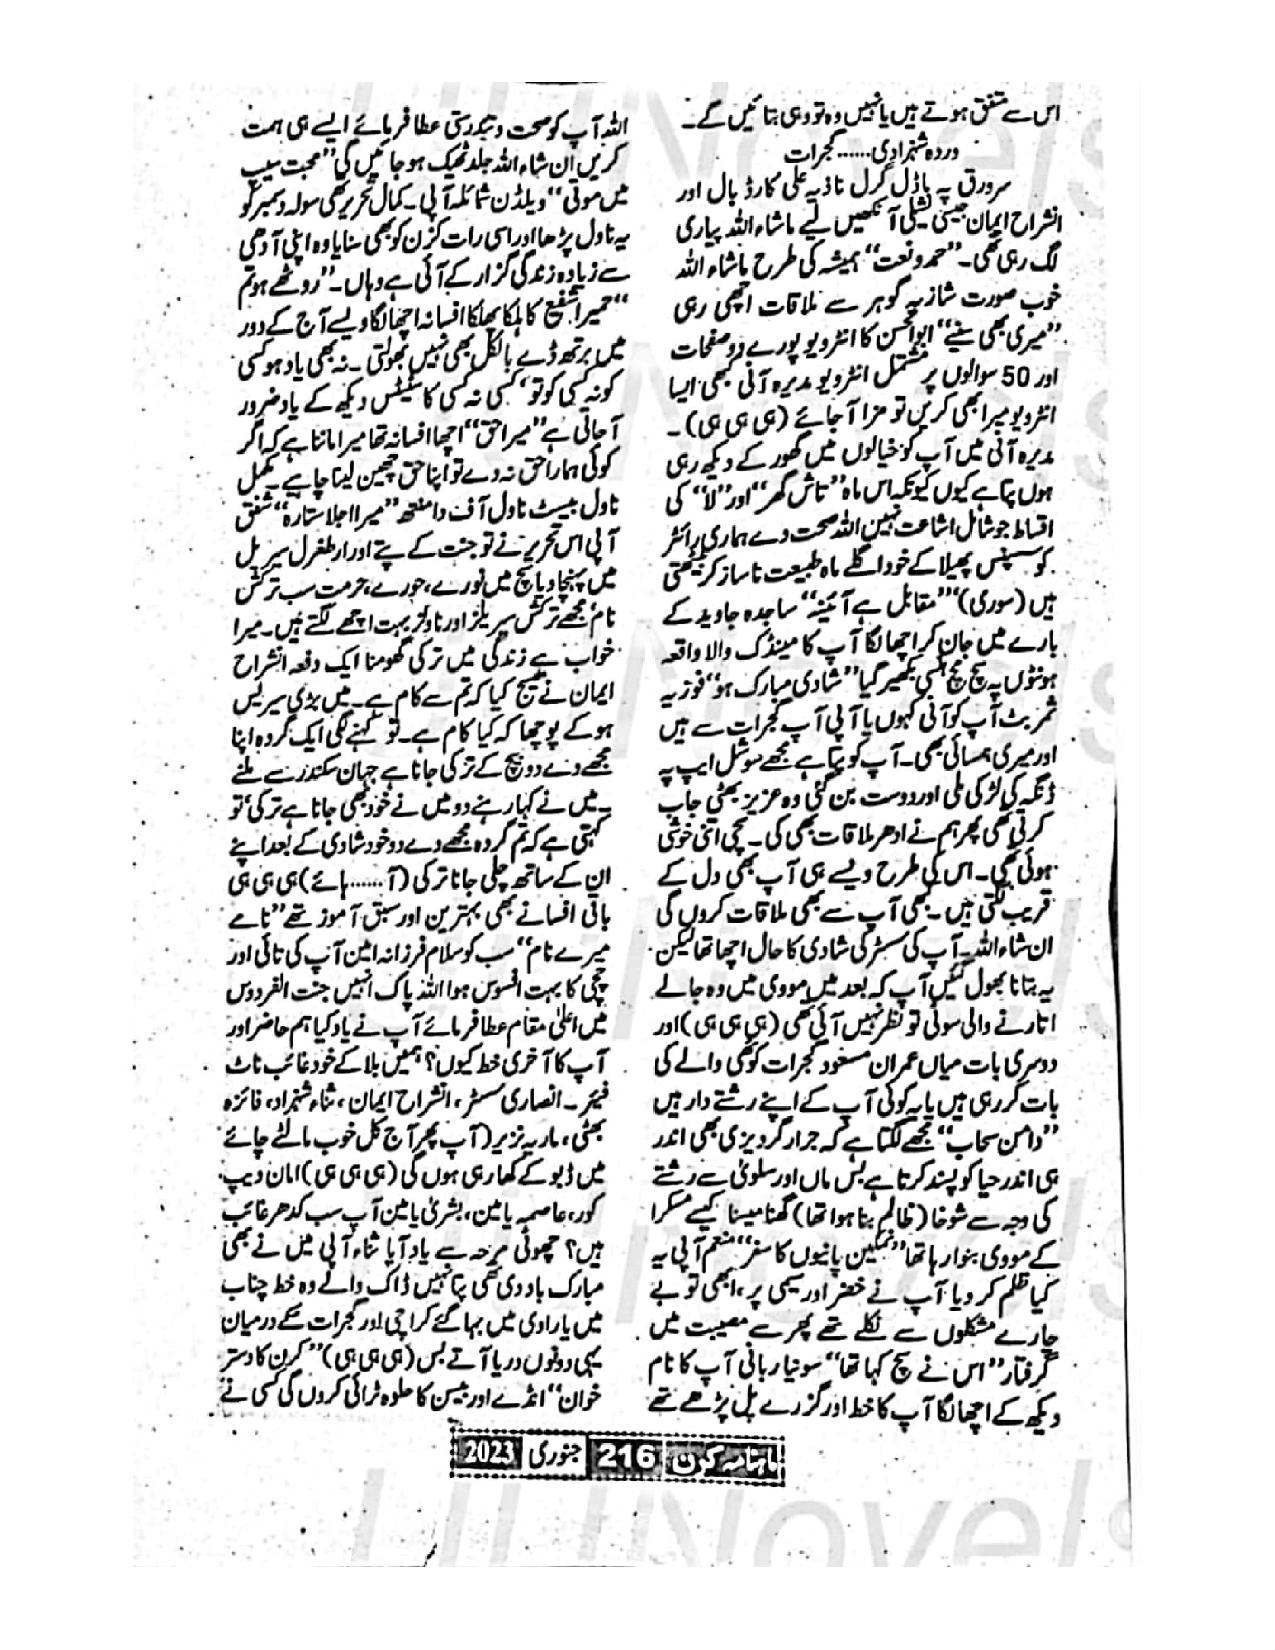 اس سے متفق ہوتے ہیں یا نہیں وہ تو وہی بتائیں گے۔
وردہ شہزادی...... گجرات
سرورق پہ ماڈل گرل نازیہ علی کارڈ بال اور
انشراح ایمان جیسی نشیلی آنکھیں لیے ماشاء اللہ پیاری
لگ رہی تھی۔ "حمد و نعت" ہمیشہ کی طرح ماشاء اللہ
خوب صورت شازیہ گوہر سے ملاقات اچھی رہی
"میری بھی سنیے" ابوالحسن کا انٹرویو پورے دو صفحات
اور 50 سوالوں پر مشتمل انٹرویو مدیرہ آنی کبھی ایسا
انٹرویو میرا بھی کریں تو مزا آجائے (ہی ہی ہی)۔
مدیرہ آنی میں آپ کو خیالوں میں گھور کے دیکھ رہی
ہوں پتا ہے کیوں کیونکہ اس ماہ "تاش گھر" اور "لا" کی
اقساط جو شامل اشاعت نہیں اللہ صحت دے ہماری رائٹر
کو سسپنس پھیلا کے خود اگلے ماہ طبیعت ناساز کر بیٹھتی
ہیں (سوری) "مقابل ہے آئینہ" ساجدہ جاوید کے
بارے میں جان کر اچھا لگا آپ کا مینڈک والا واقعہ
ہونٹوں پہ سچ مچ ہنسی بکھیر گیا "شادی مبارک ہو" فوزیہ
ثمر بٹ آپ کو آنی کہوں یا آپی آپ گجرات سے ہیں
اور میری ہمسائی بھی۔ آپ کو پتا ہے مجھے سوشل ایپ پہ
ڈنگہ کی لڑکی ملی اور دوست بن گئی وہ عزیز بھٹی جاب
کرتی تھی پھر ہم نے ادھر ملاقات بھی کی۔ سچی اتنی خوشی
ہوئی تھی۔ اس کی طرح ویسے ہی آپ بھی دل کے
قریب لگتی ہیں۔ کبھی آپ سے بھی ملاقات کروں گی
ان شاء اللہ۔ آپ کی سسٹر کی شادی کا حال اچھا تھا لیکن
یہ بتانا بھول گئیں آپ کہ بعد میں مووی میں وہ جالے
اتارنے والی سوٹی تو نظر نہیں آئی تھی (ہی ہی ہی) اور
دوسری بات میاں عمران مسعود گجرات کوٹھی والے کی
بات کر رہی ہیں یا یہ کوئی آپ کے اپنے رشتے دار ہیں
"دامن سحاب" مجھے لگتا ہے کہ جرار گردیزی بھی اندر
ہی اندر حیا کو پسند کرتا ہے بس ماں اور سلویٰ سے رشتے
کی وجہ سے شوخا (ظالم بنا ہوا تھا) گھنا میسنا کیسے مسکرا
کے مووی بنوا رہا تھا "نمکین پانیوں کا سفر" منعم آپی یہ
کیا ظلم کر دیا آپ نے خضر اور سیمی پر، ابھی تو بے
چارے مشکلوں سے نکلے تھے پھر سے مصیبت میں
گرفتار "اس نے سچ کہا تھا" سونیا ربانی آپ کا نام
دیکھ کے اچھا لگا آپ کا خط اور گزرے پل پڑھے تھے
اللہ آپ کو صحت و تندرستی عطا فرمائے ایسے ہی ہمت
کریں ان شاء اللہ جلد ٹھیک ہو جائیں گی "محبت سیپ
میں موتی" ویلڈن شمائلہ آپی۔ کمال تحریر تھی سولہ دسمبر کو
یہ ناول پڑھا اور اسی رات کزن کو بھی سنایا وہ اپنی آدھی
سے زیادہ زندگی گزار کے آئی ہے وہاں۔ "روٹھے ہو تم
"حمیرا شفیع کا ہلکا پھلکا افسانہ اچھا لگا ویسے آج کے دور
میں برتھ ڈے بالکل بھی نہیں بھولتی۔ نہ بھی یاد ہو کسی
کو نہ کسی کو تو، کسی نہ کسی کا سٹیٹس دیکھ کے یاد ضرور
آ جاتی ہے "میرا حق" اچھا افسانہ تھا میرا ماننا ہے کہ اگر
کوئی ہمارا حق نہ دے تو اپنا حق چھین لینا چاہیے۔ مکمل
ناول بیسٹ ناول آف دا منتھ "میرا اجلا ستارہ" شفق
آپی اس تحریر نے تو جنت کے پتے اور ارطغرل سیریل
میں پہنچا دیا سچ میں نورے، حورے، حرمت سب ترکش
نام مجھے ترکش سیریلز اور ناولز بہت اچھے لگتے ہیں۔ میرا
خواب ہے زندگی میں ترکی گھومنا ایک دفعہ انشراح
ایمان نے میسج کیا کہ تم سے کام ہے۔ میں بڑی سیریس
ہو کے پوچھا کہ کیا کام ہے۔ تو کہنے لگی ایک گردہ اپنا
مجھے دے دو بیچ کے ترکی جانا ہے جہان سکندر سے ملنے
۔ میں نے کہا رہنے دو میں نے خود بھی جانا ہے ترکی، تو
کہتی ہے کہ تم گردہ مجھے دے دو خود شادی کے بعد اپنے
ان کے ساتھ چلی جانا ترکی (آ...... ہائے) ہی ہی ہی
باقی افسانے بھی بہترین اور سبق آموز تھے "نامے
میرے نام" سب کو سلام فرزانہ امین آپ کی تائی اور
چچی کا بہت افسوس ہوا اللہ پاک انہیں جنت الفردوس
میں اعلیٰ مقام عطا فرمائے آپ نے یاد کیا ہم حاضر اور
آپ کا آخری خط کیوں؟ ہمیں بلا کے خود غائب ناٹ
فیئر۔ انصاری سسٹر، انشراح ایمان، ثناء شہزاد، فائزہ
بھٹی، ماریہ نزیر (آپ پھر آج کل خوب مالٹے چائے
میں ڈبو کے کھا رہی ہوں گی (ہی ہی ہی) امان دیپ
کور، عاصمہ یامین، بشریٰ یامین آپ سب کدھر غائب
ہیں؟ چھوٹی مرحہ سے یاد آیا ثناء آپی میں نے بھی
مبارک باد دی تھی پتا نہیں ڈاک والے وہ خط چناب
میں یا راوی میں بہا گئے کراچی اور گجرات کے درمیان
یہی دونوں دریا آتے بس (ہی ہی ہی) "کرن کا دستر
خوان" انڈے اور بیسن کا حلوہ ٹرائی کروں گی کسی نے
ماہنامہ کرن 216 جنوری 2023
UrNovels